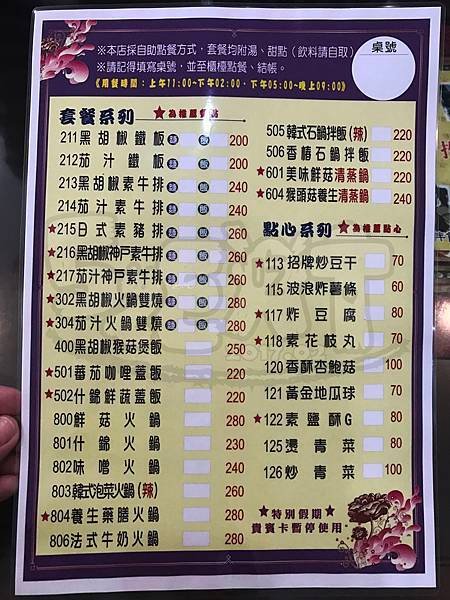 ※本店採自助點餐方式，套餐均附湯、甜點（飲料請自取）
※請記得填寫桌號，並至櫃檯點餐、結帳。
《用餐時間：上午11:00~下午02:00．下午05:00~晚上09:00》
桌號
套餐系列 ★為推薦餐點
211黑胡椒鐵板 麵 飯 200
212茄汁鐵板 麵 飯 200
213黑胡椒素牛排 麵 飯 240
214茄汁素牛排 麵 飯 240
★215日式素豬排 麵 飯 240
★216黑胡椒神戶素牛排 麵 飯 260
★217茄汁神戶素牛排 麵 飯 260
★302黑胡椒火鍋雙燒 麵 飯 280
★304茄汁火鍋雙燒 麵 飯 280
400黑胡椒猴菇煲飯 250
★501蕃茄咖哩蓋飯 220
★502什錦鮮蔬蓋飯 220
800鮮菇火鍋 280
801什錦火鍋 230
802味噌火鍋 240
803韓式泡菜火鍋(辣) 260
★804養生藥膳火鍋 280
806法式牛奶火鍋 280
505韓式石鍋拌飯(辣) 220
506香椿石鍋拌飯 220
★601美味鮮菇清蒸鍋 220
★604猴頭菇養生清蒸鍋 240
點心系列 ★為推薦點心
★113招牌炒豆干 70
115波浪炸薯條 60
★117炸豆腐 80
★118素花枝丸 70
120香酥杏鮑菇 100
121黃金地瓜球 70
★122素鹽酥G 80
125燙青菜 80
126炒青菜 100
★特別假期★
貴賓卡暫停使用